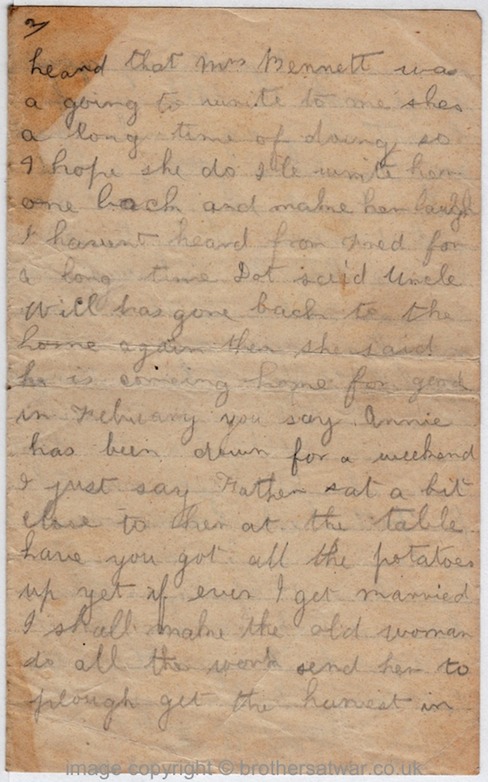 2
heard that Mrs Bennett was
a going to write to me shes
a long time of doing so
I hope she do Ile write her
one back and make her laugh
I havent heard from Fred for
a long time Dot said Uncle
Will has gone back to the
home again then she said
he is comeing home for good
in Febuary you say Annie
has been down for a weekend
I just say Father sat a bit
close to her at the table
have you got all the potatoes
up yet if ever I get married
I shall make the old woman
do all the work send her to
plough get the harvest in
image copyright © brothersatwar.co.uk